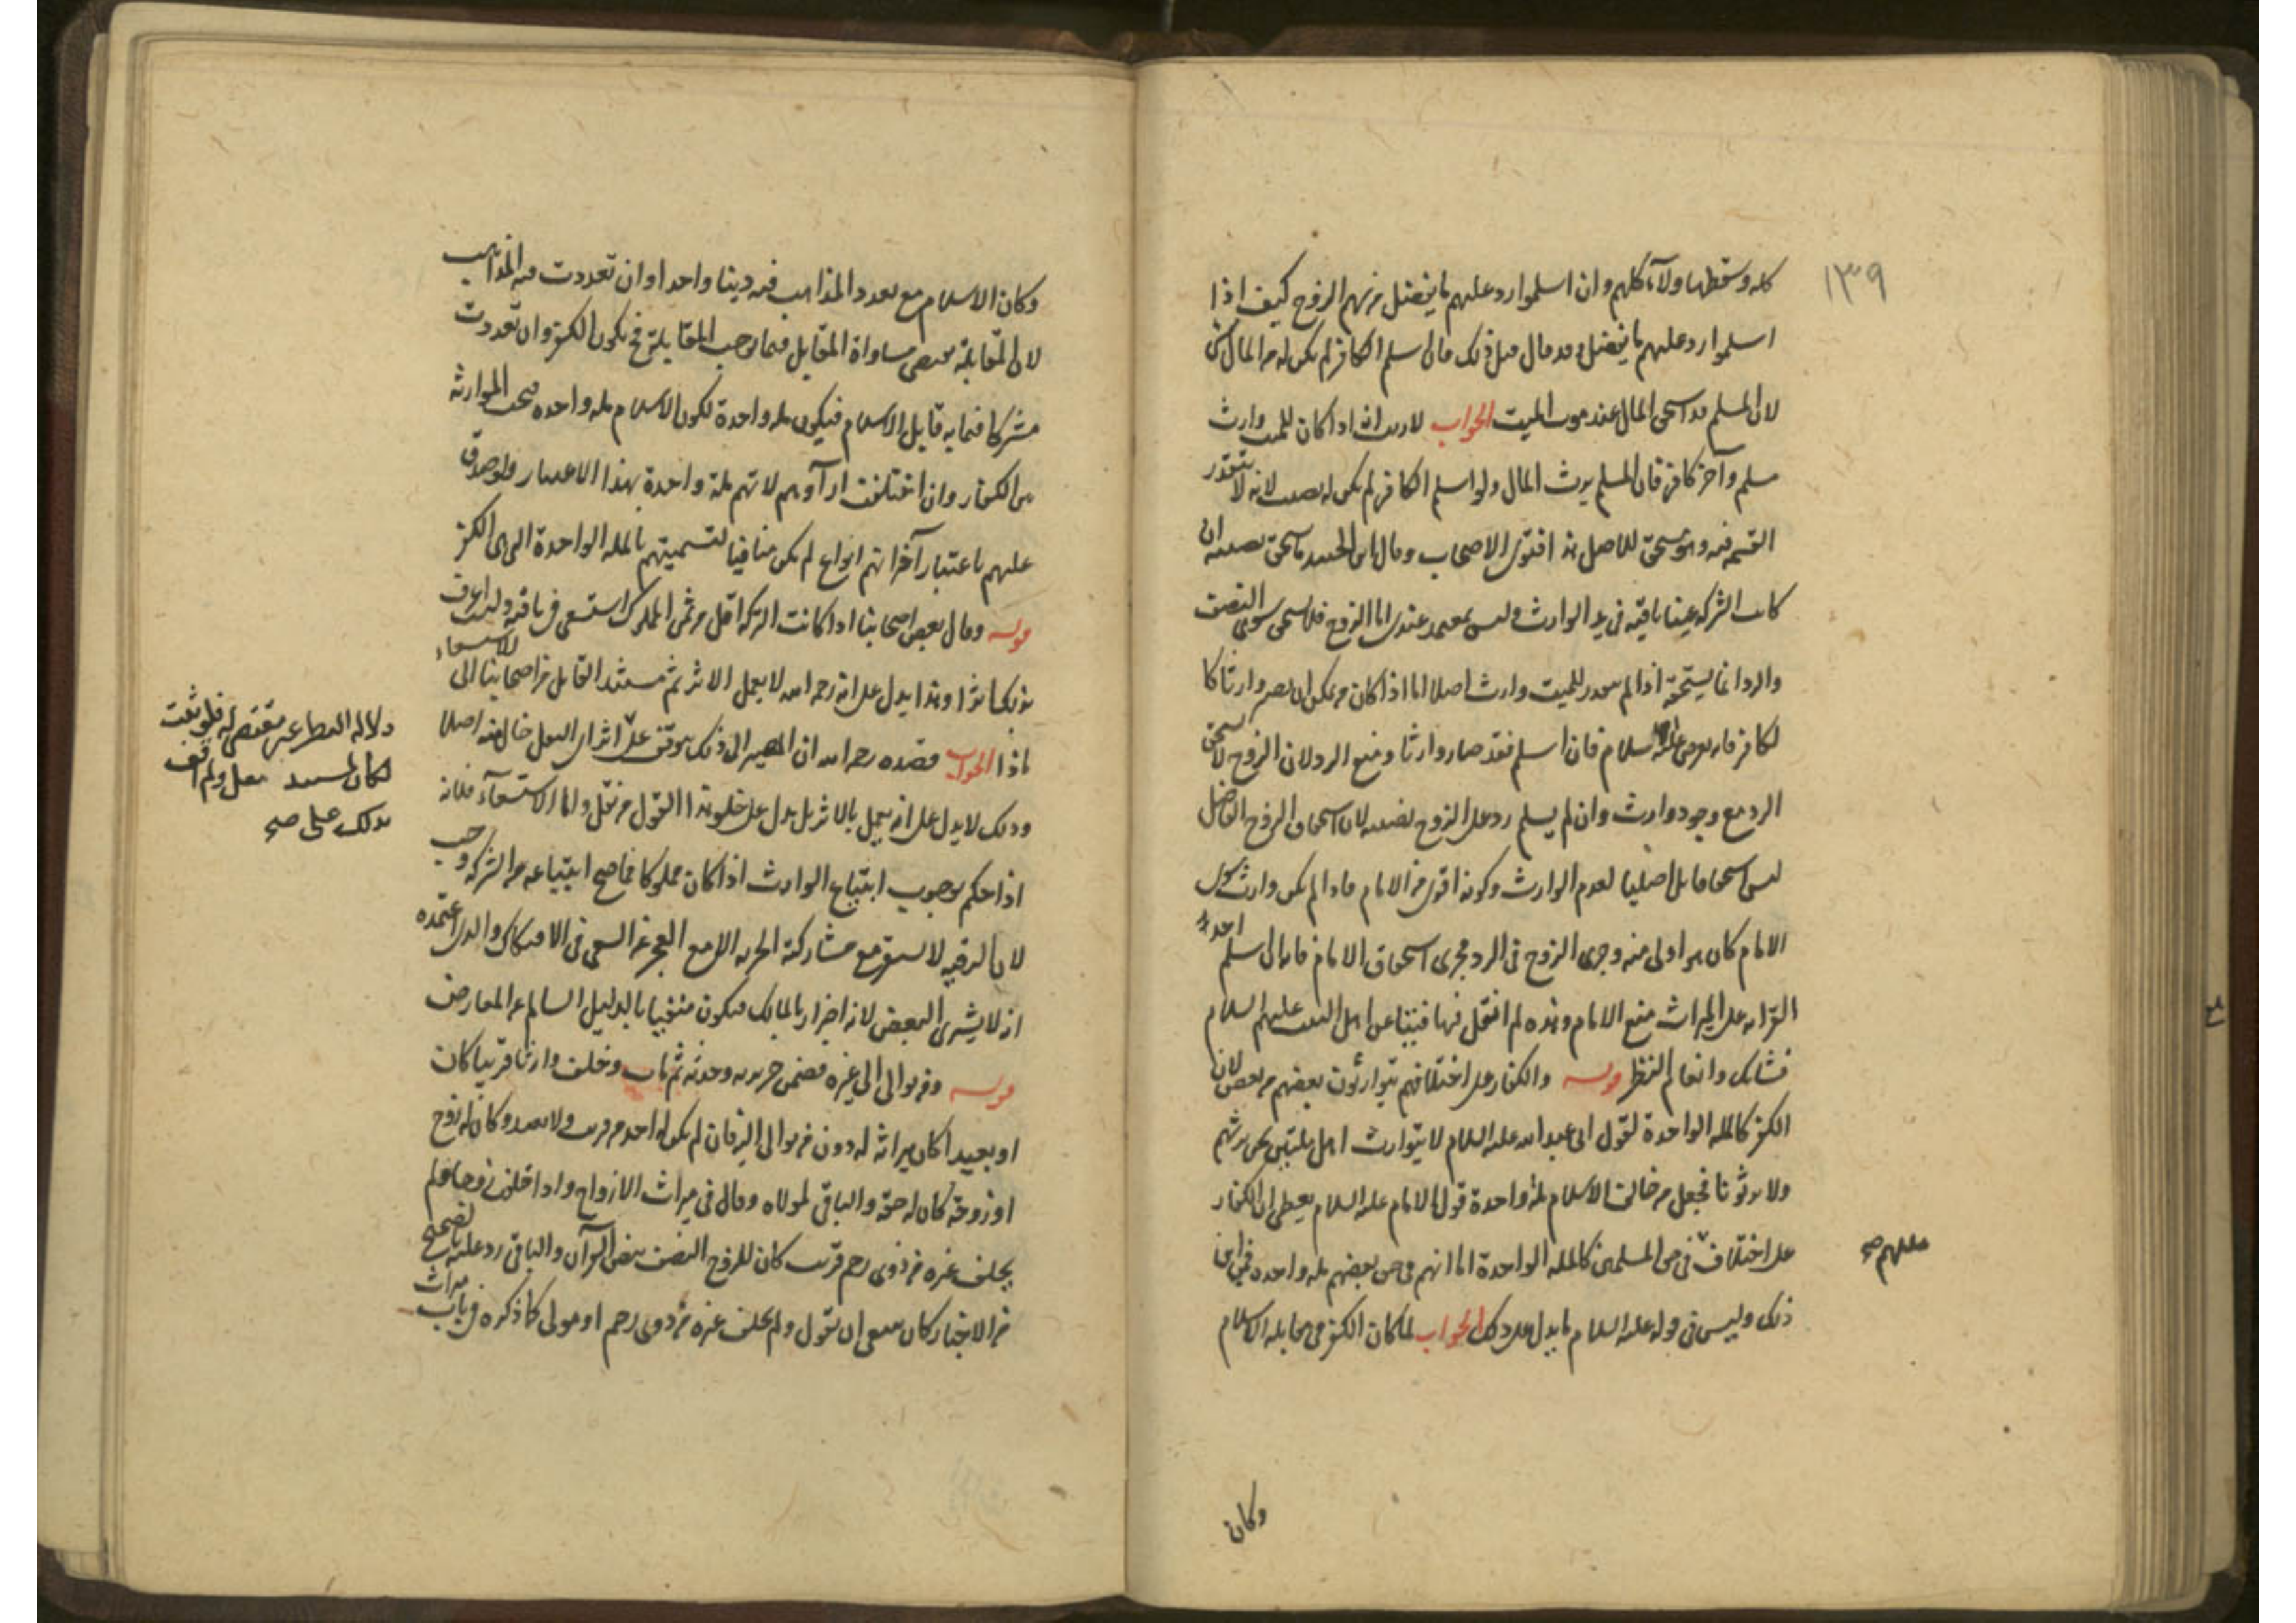 ١٣٩
كله وسقطها ولآء كلهم وان اسلموا رد عليهم ما يفضل من سهم الزوج كيف اذا
اسلموا رد عليهم ما يفضل وقد قال قبل ذلك فان اسلم الكافر لم يكن له من المال شئ
لان المسلم قد استحق المال عند موت الميت الجواب لا ريب انه اذا كان للميت وارث
مسلم وآخر كافر فان المسلم يرث المال ولو اسلم الكافر لم يكن له نصيب لانه لا تتقدر
القسمة فيه وهو مستحق للاصل هذا فتوى الاصحاب وقال ابن الجنيد يستحق نصيبه ان
كانت التركة عينا باقية في يد الوارث وليس بمعتمد عندي اما الزوج فلا يستحق سوى النصف
والرد انما يستحقه اذا لم يوجد للميت وارث اصلا اما اذا كان من يمكن ان يصير وارثا كا
لكافر فانه يعرض عليه الاسلام فان اسلم فقد صار وارثا ومنع الرد لان الزوج لا يستحق
الرد مع وجود وارث وان لم يسلم رد على الزوج نصيبه لان استحقاق الزوج الفاضل
ليس استحقاقا اصليا لعدم الوارث وكونه اقوى من الامام فاذا لم يكن وارث سوى
الامام كان هو اولى منه وجرى الزوج في الرد مجرى استحقاق الامام فانه ان اسلم احد
القرابة على الميراث منع الامام وهذه لم انقل فيها فتيا عن اهل البيت عليهم السلام
فشانك وانعام النظر قوله والكفار على اختلافهم يتوارثون بعضهم من بعض لان
الكفر كالملة الواحدة لقول ابي عبد الله عليه السلام لا يتوارث اهل ملتين نحن نرثهم
ولا يرثونا فجعل من خالف الاسلام ملة واحدة قول الامام عليه السلام يعطى ان الكفار
على اختلاف في حق المسلمين كالملة الواحدة اما انهم في حق بعضهم ملة واحدة فمن اين
مللهم صح
ذلك وليس في قوله عليه السلام ما يدل على ذلك الجواب لما كان الكفر في مقابلة الاسلام
وكان
وكان الاسلام مع تعدد المذاهب فيه دينا واحدا وان تعددت فيه المذاهب
لان المقابلة تقتضي مساواة المقابل فيما يوجب المقابلة فح يكون الكفر وان تعددت
مشتركا فيما به قابل الاسلام فيكون ملة واحدة لكون الاسلام ملة واحدة فتجب الموارثة
بين الكفار وان اختلفت ارآؤهم لانهم ملة واحدة بهذا الاعتبار ولو صدق
عليهم باعتبار آخر انهم انواع لم يكن منافيا لتسميتهم بالملة الواحدة التي هي الكفر
قوله وقال بعض اصحابنا اذا كانت التركة اقل من ثمن المملوك استسعى في باقيه ولست اعرف
بذلك اثرا وهذا يدل على انه رحمه الله لا يعمل الا بأثر ثم مستند القايل من اصحابنا الى
للاستسعاء
ماذا الجواب قصده رحمه الله ان المصير الى ذلك يتوقف على اثر اى القول خال منه اصلا
دلالة العطا غير مقتض له فلو ثبت
لكان لمستند نقل ولم اقف
بذلك على صح
وذلك لا يدل على انه يعمل بالاثر بل يدل على خلو هذا القول من نقل واما الاستسعآء فلانه
اذا حكم بوجوب ابتياع الوارث اذا كان مملوكا فما صح ابتياعه من التركة وجب
لان الرقية لا تستقر مع مشاركة الحرية الا مع العجز عن السعي في الافتكاك والذي اعتمده
انه لا يشترى البعض لانه اضرار بالمالك فيكون منفيا بالدليل السالم عن المعارض
قوله ومن توالى الى غيره فضمن جريرته وحدثه ثم مات وخلف وارثا قريبا كان
او بعيدا كان ميراثه له دون من توالى اليه فان لم يكن له احد من قريب ولا بعيد وكان له زوج
او زوجة كان له حقه والباقي لمولاه وقال في ميراث الازواج واذا خلفت زوجا ولم
يخلف غيره من ذوي رحم قريب كان للزوج النصف بنص القرآن والباقي رد عليه بالصحيح
من الاخبار كان ينبغي ان يقول ولم يخلف غيره من ذوي رحم او مولى كما ذكره في باب ميراث